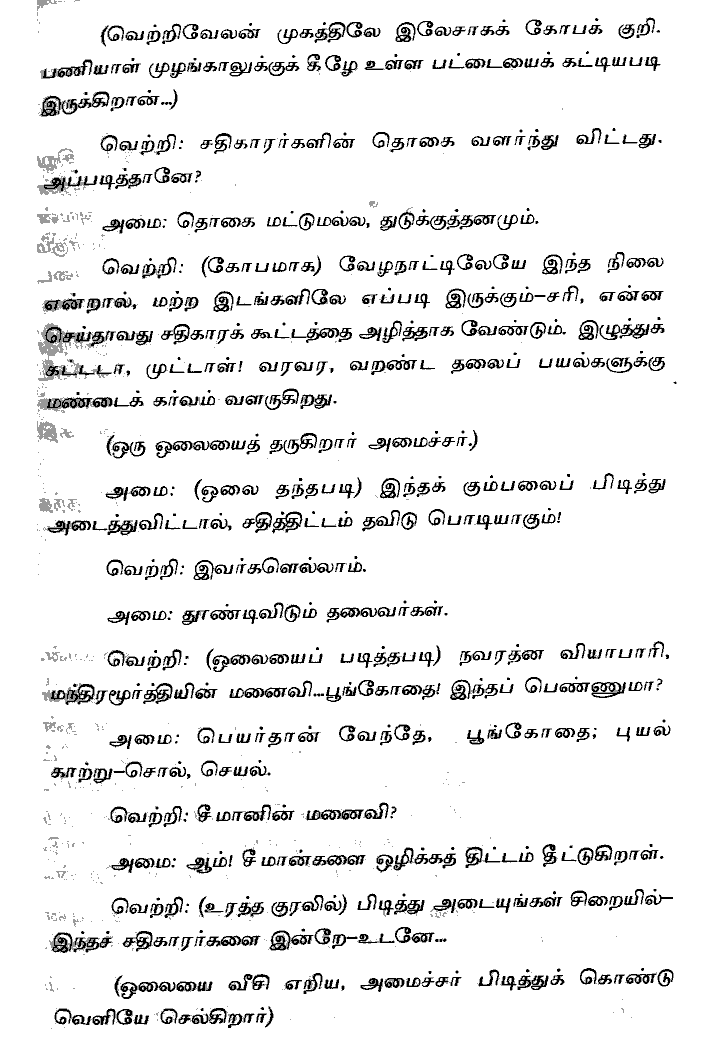 (வெற்றிவேலன் முகத்திலே இலேசாகக் கோபக் குறி.
பணியாள் முழங்காலுக்குக் கீழே உள்ள பட்டையைக் கட்டியபடி
இருக்கிறான்...)
வெற்றி: சதிகாரர்களின் தொகை வளர்ந்து விட்டது.
அப்படித்தானே?
அமை: தொகை மட்டுமல்ல, துடுக்குத்தனமும்.
வெற்றி: (கோபமாக) வேழநாட்டிலேயே இந்த நிலை
என்றால், மற்ற இடங்களிலே எப்படி இருக்கும்–சரி, என்ன
செய்தாவது சதிகாரக் கூட்டத்தை அழித்தாக வேண்டும். இழுத்துக்
கட்டடா, முட்டாள்! வரவர, வறண்ட தலைப் பயல்களுக்கு
மண்டைக் கர்வம் வளருகிறது.
(ஒரு ஓலையைத் தருகிறார் அமைச்சர்.)
அமை: (ஓலை தந்தபடி) இந்தக் கும்பலைப் பிடித்து
அடைத்துவிட்டால், சதித்திட்டம் தவிடு பொடியாகும்!
வெற்றி: இவர்களெல்லாம்.
அமை: தூண்டிவிடும் தலைவர்கள்.
வெற்றி: (ஓலையைப் படித்தபடி) நவரத்ன வியாபாரி,
மந்திரமூர்த்தியின் மனைவி...பூங்கோதை! இந்தப் பெண்ணுமா?
அமை: பெயர்தான் வேந்தே, பூங்கோதை; புயல்
காற்று–சொல், செயல்.
வெற்றி: சீமானின் மனைவி?
அமை: ஆம்! சீமான்களை ஒழிக்கத் திட்டம் தீட்டுகிறாள்.
வெற்றி: (உரத்த குரலில்) பிடித்து அடையுங்கள் சிறையில்–
இந்தச் சதிகாரர்களை இன்றே–உடனே...
(ஓலையை வீசி எறிய, அமைச்சர் பிடித்துக் கொண்டு
வெளியே செல்கிறார்)